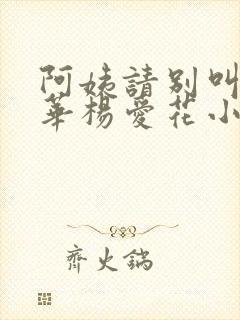 阿姨請別叫
華楊愛花小
齊火鍋